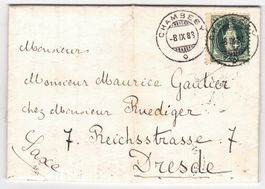 CHAMBESY
-8.IX.83
Monsieur
Monsieur Maurice Gautier
chez Monsieur Ruediger
7. Reichsstrasse 7
Dresde
(Saxe